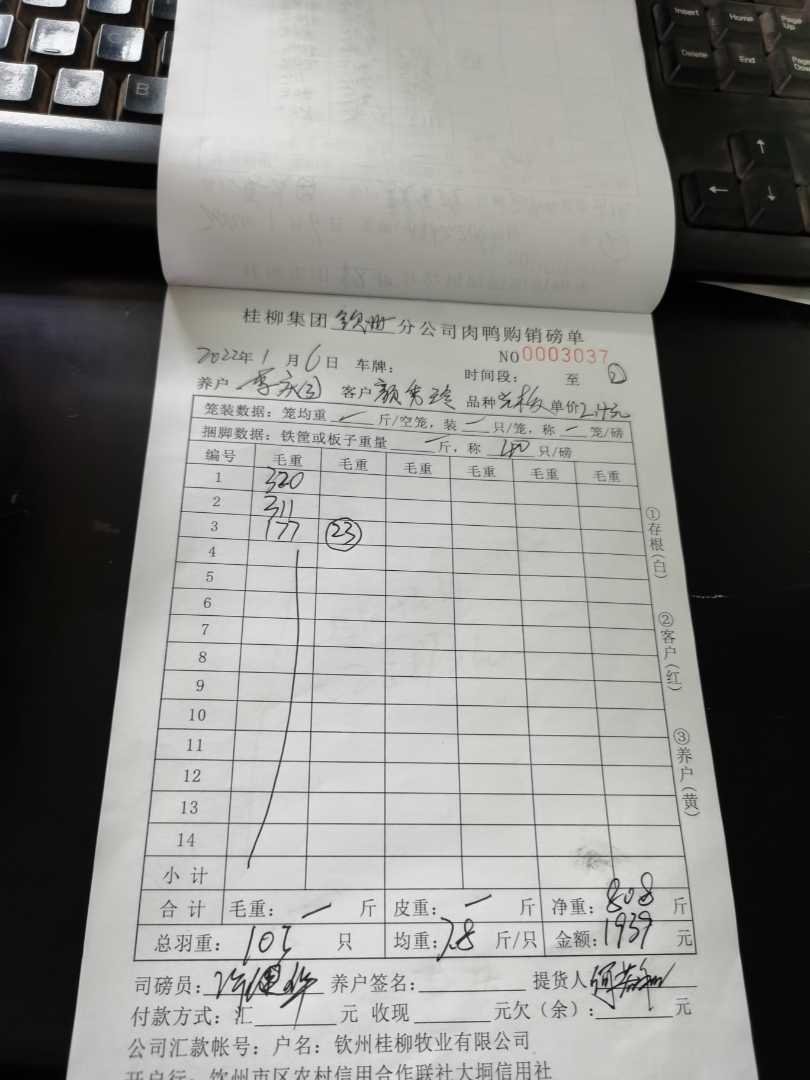 Insert Home Page Up
Delete End Page Down
B
桂柳集团 钦州 分公司肉鸭购销磅单
NO 0003037
2022年1月6日 车牌: 时间段: 至 ②
养户 李 客户 颜秀 品种 单价 2.4元
笼装数据: 笼均重 / 斤/空笼, 装 一 只/笼, 称 一 笼/磅
捆脚数据: 铁筐或板子重量 一 斤, 称 40 只/磅
编号 毛重 毛重 毛重 毛重 毛重 毛重
1 320
2 311
3 177 23
4
5
6
7
8
9
10
11
12
13
14
小计
合计 毛重: 一 斤 皮重: 一 斤 净重: 808 斤
总羽重: 103 只 均重: 7.8 斤/只 金额: 1939 元
司磅员: 养户签名: 提货人
付款方式: 汇 元 收现 元欠(余): 元
公司汇款帐号: 户名: 钦州桂柳牧业有限公司
开户行: 钦州市区农村信用合作联社大垌信用社
①存根(白)
②客户(红)
③养户(黄)